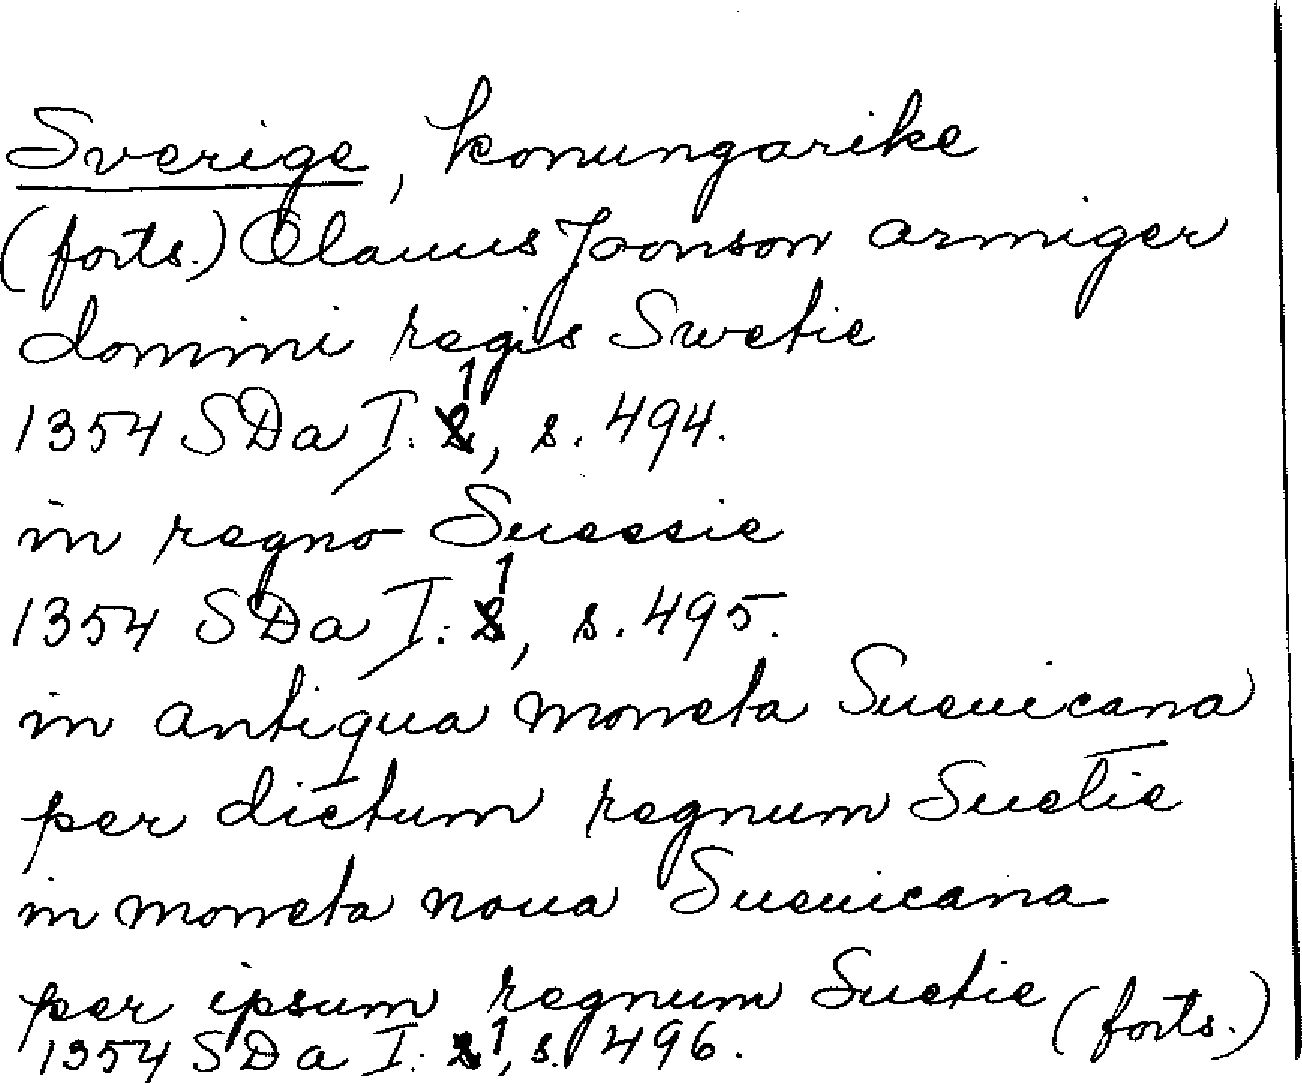 Sverige, konungarike
(forts.) Olauus Joonson armiger
domini regis Swetie
1354 SDa I:1, s. 494.
in regno Suessie
1354 SDa I:1, s. 495.
in antiqua moneta Sueuicana
per dictum regnum Suetie
in moneta noua Sueuicana
per ipsum regnum Suetie (forts.)
1354 SDa I:1, s. 496.